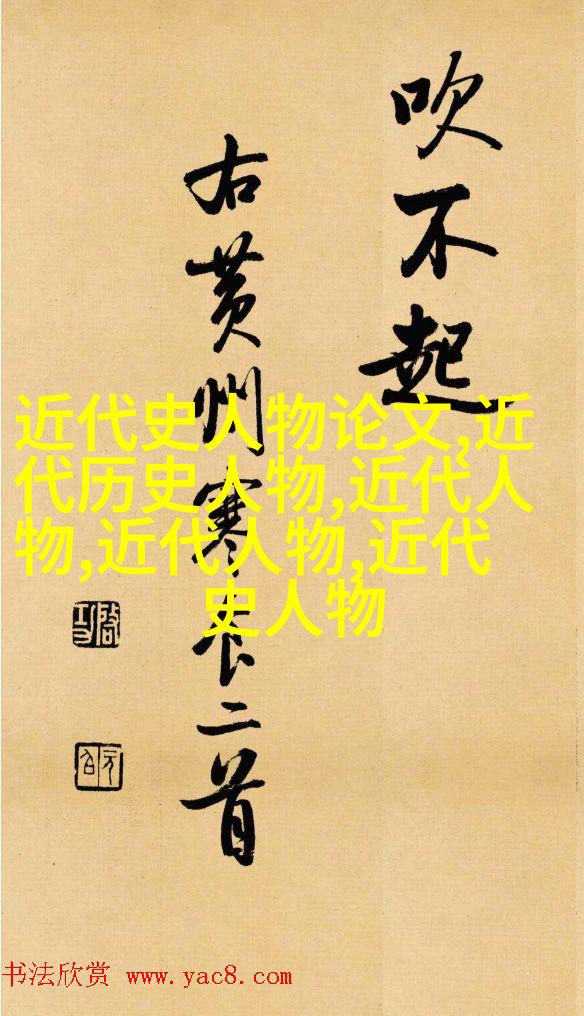 吹不起
右黄州寒食二首
近代史人物论文,近
代历史人物,近代人
物,近代人物,近代
史人物
启功
元白
书法欣赏 www.yac8.com